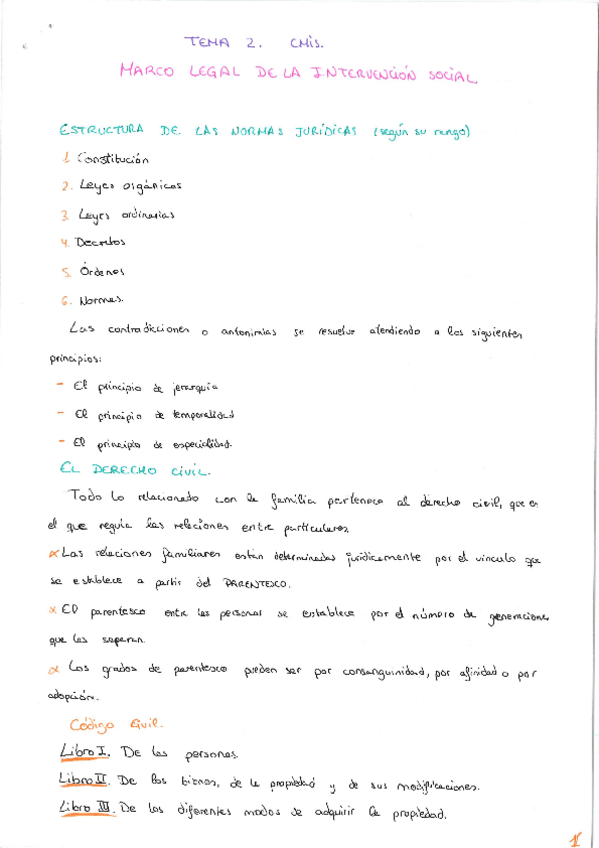 TEMA 2. CMIS.
MARCO LEGAL DE LA INTERVENCIÓN SOCIAL
ESTRUCTURA DE LAS NORMAS JURÍDICAS (según su rango)
1. Constitución
2. Leyes orgánicas
3. Leyes ordinarias
4. Decretos
5. Órdenes
6. Normas.
Las contradicciones o antonimias se resuelve atendiendo a los siguientes
principios:
- El principio de jerarquía
- El principio de temporalidad
- El principio de especialidad.
EL DERECHO CIVIL.
Todo lo relacionado con la familia pertenece al derecho civil, que es
el que regula las relaciones entre particulares.
* Las relaciones familiares están determinadas jurídicamente por el vínculo que
se establece a partir del PARENTESCO.
* El parentesco entre las personas se establece por el número de generaciones
que las separan.
* Los grados de parentesco pueden ser por consanguinidad, por afinidad o por
adopción.
Código Civil.
Libro I. De las personas.
Libro II. De los bienes, de la propiedad y de sus modificaciones.
Libro III. De los diferentes modos de adquirir la propiedad.
1